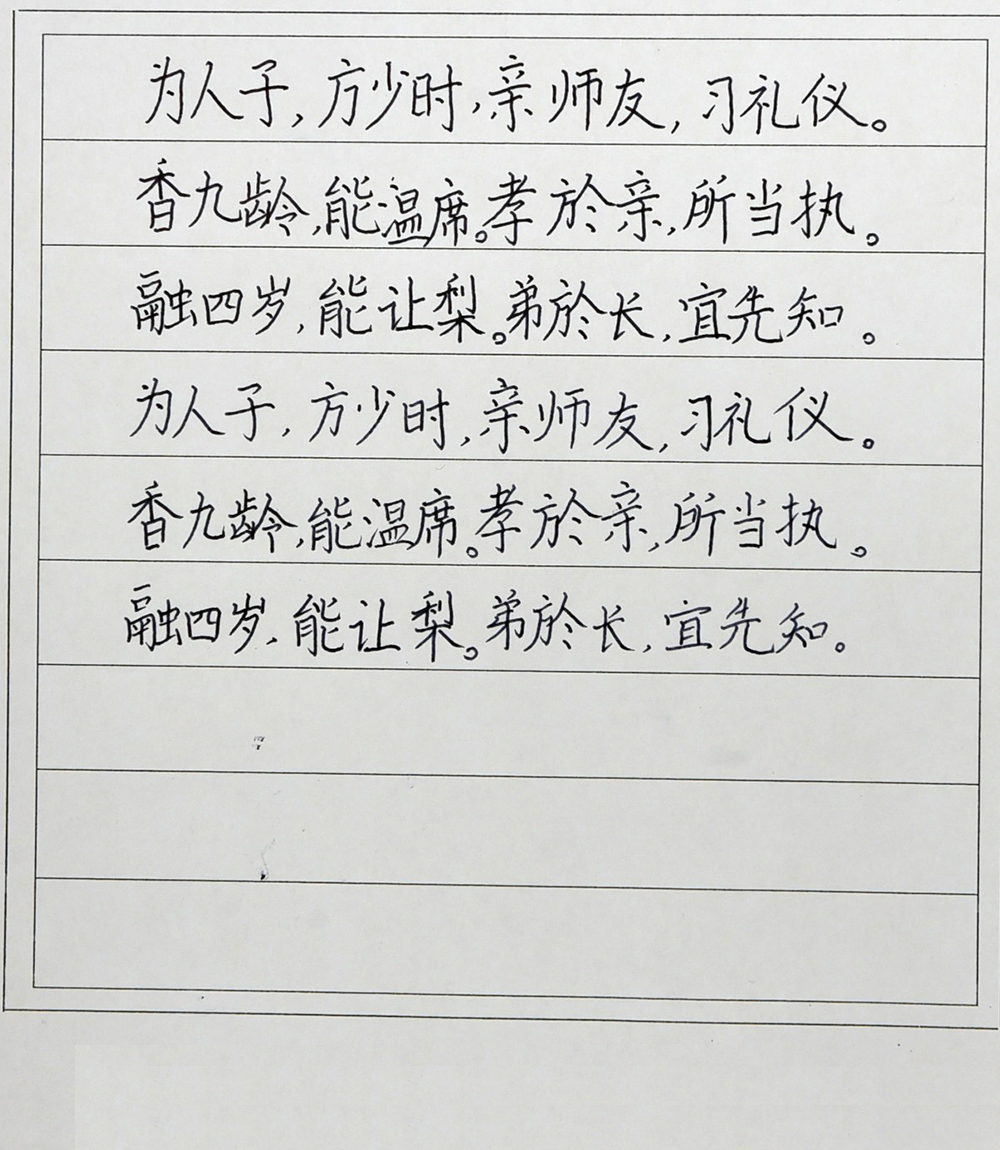 为人子，方少时，亲师友，习礼仪。
香九龄，能温席。孝於亲，所当执。
融四岁，能让梨。弟於长，宜先知。
为人子，方少时，亲师友，习礼仪。
香九龄，能温席。孝於亲，所当执。
融四岁，能让梨。弟於长，宜先知。